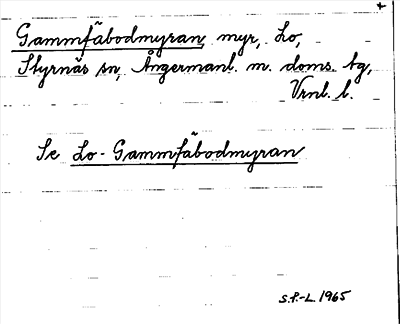 Gammfäbodmyran, myr, Lo,
Styrnäs sn, Ångermanl. m. doms. tg,
Vrnl. l.
Se Lo-Gammfäbodmyran
S.P.-L. 1965